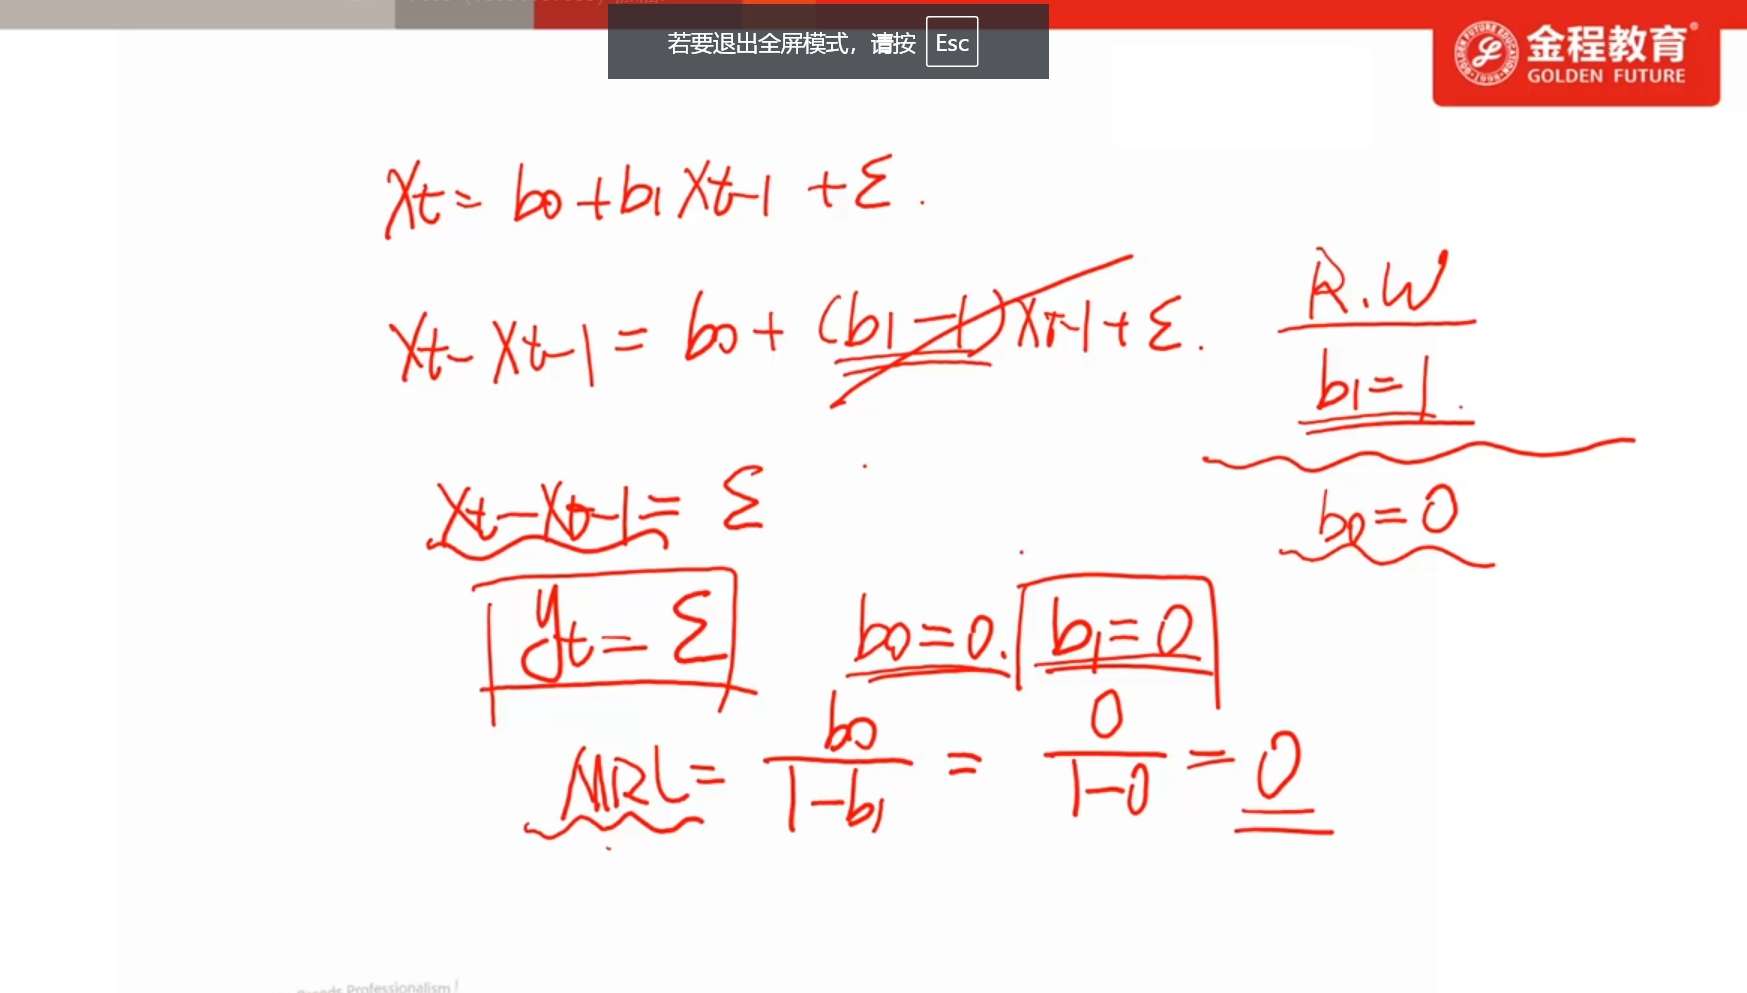 若要退出全屏模式，请按 Esc
金程教育®
GOLDEN FUTURE
Xt = b0 + b1 Xt-1 + ε.
Xt - Xt-1 = b0 + (b1 - 1) Xt-1 + ε.
R.W
b1 = 1.
Xt - Xt-1 = ε
b0 = 0
yt = ε
b0 = 0. b1 = 0
MRL = b0/(1-b1) = 0/(1-0) = 0
Professionalism!